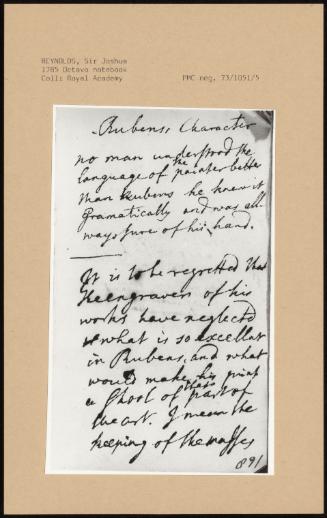 REYNOLDS, Sir Joshua
1785 Octavo notebook
Coll: Royal Academy
PMC neg. 73/1051/5
Rubens Character
no man understood the
language of the painter better
than Rubens he knew it
Gramatically and was all
ways sure of his hand.
It is to be regretted that
the engravers of his
works have neglected
what is so excellent
in Rubens, and what
would make his prints
a School of that part of
the art. I mean the
keeping of the masses
891